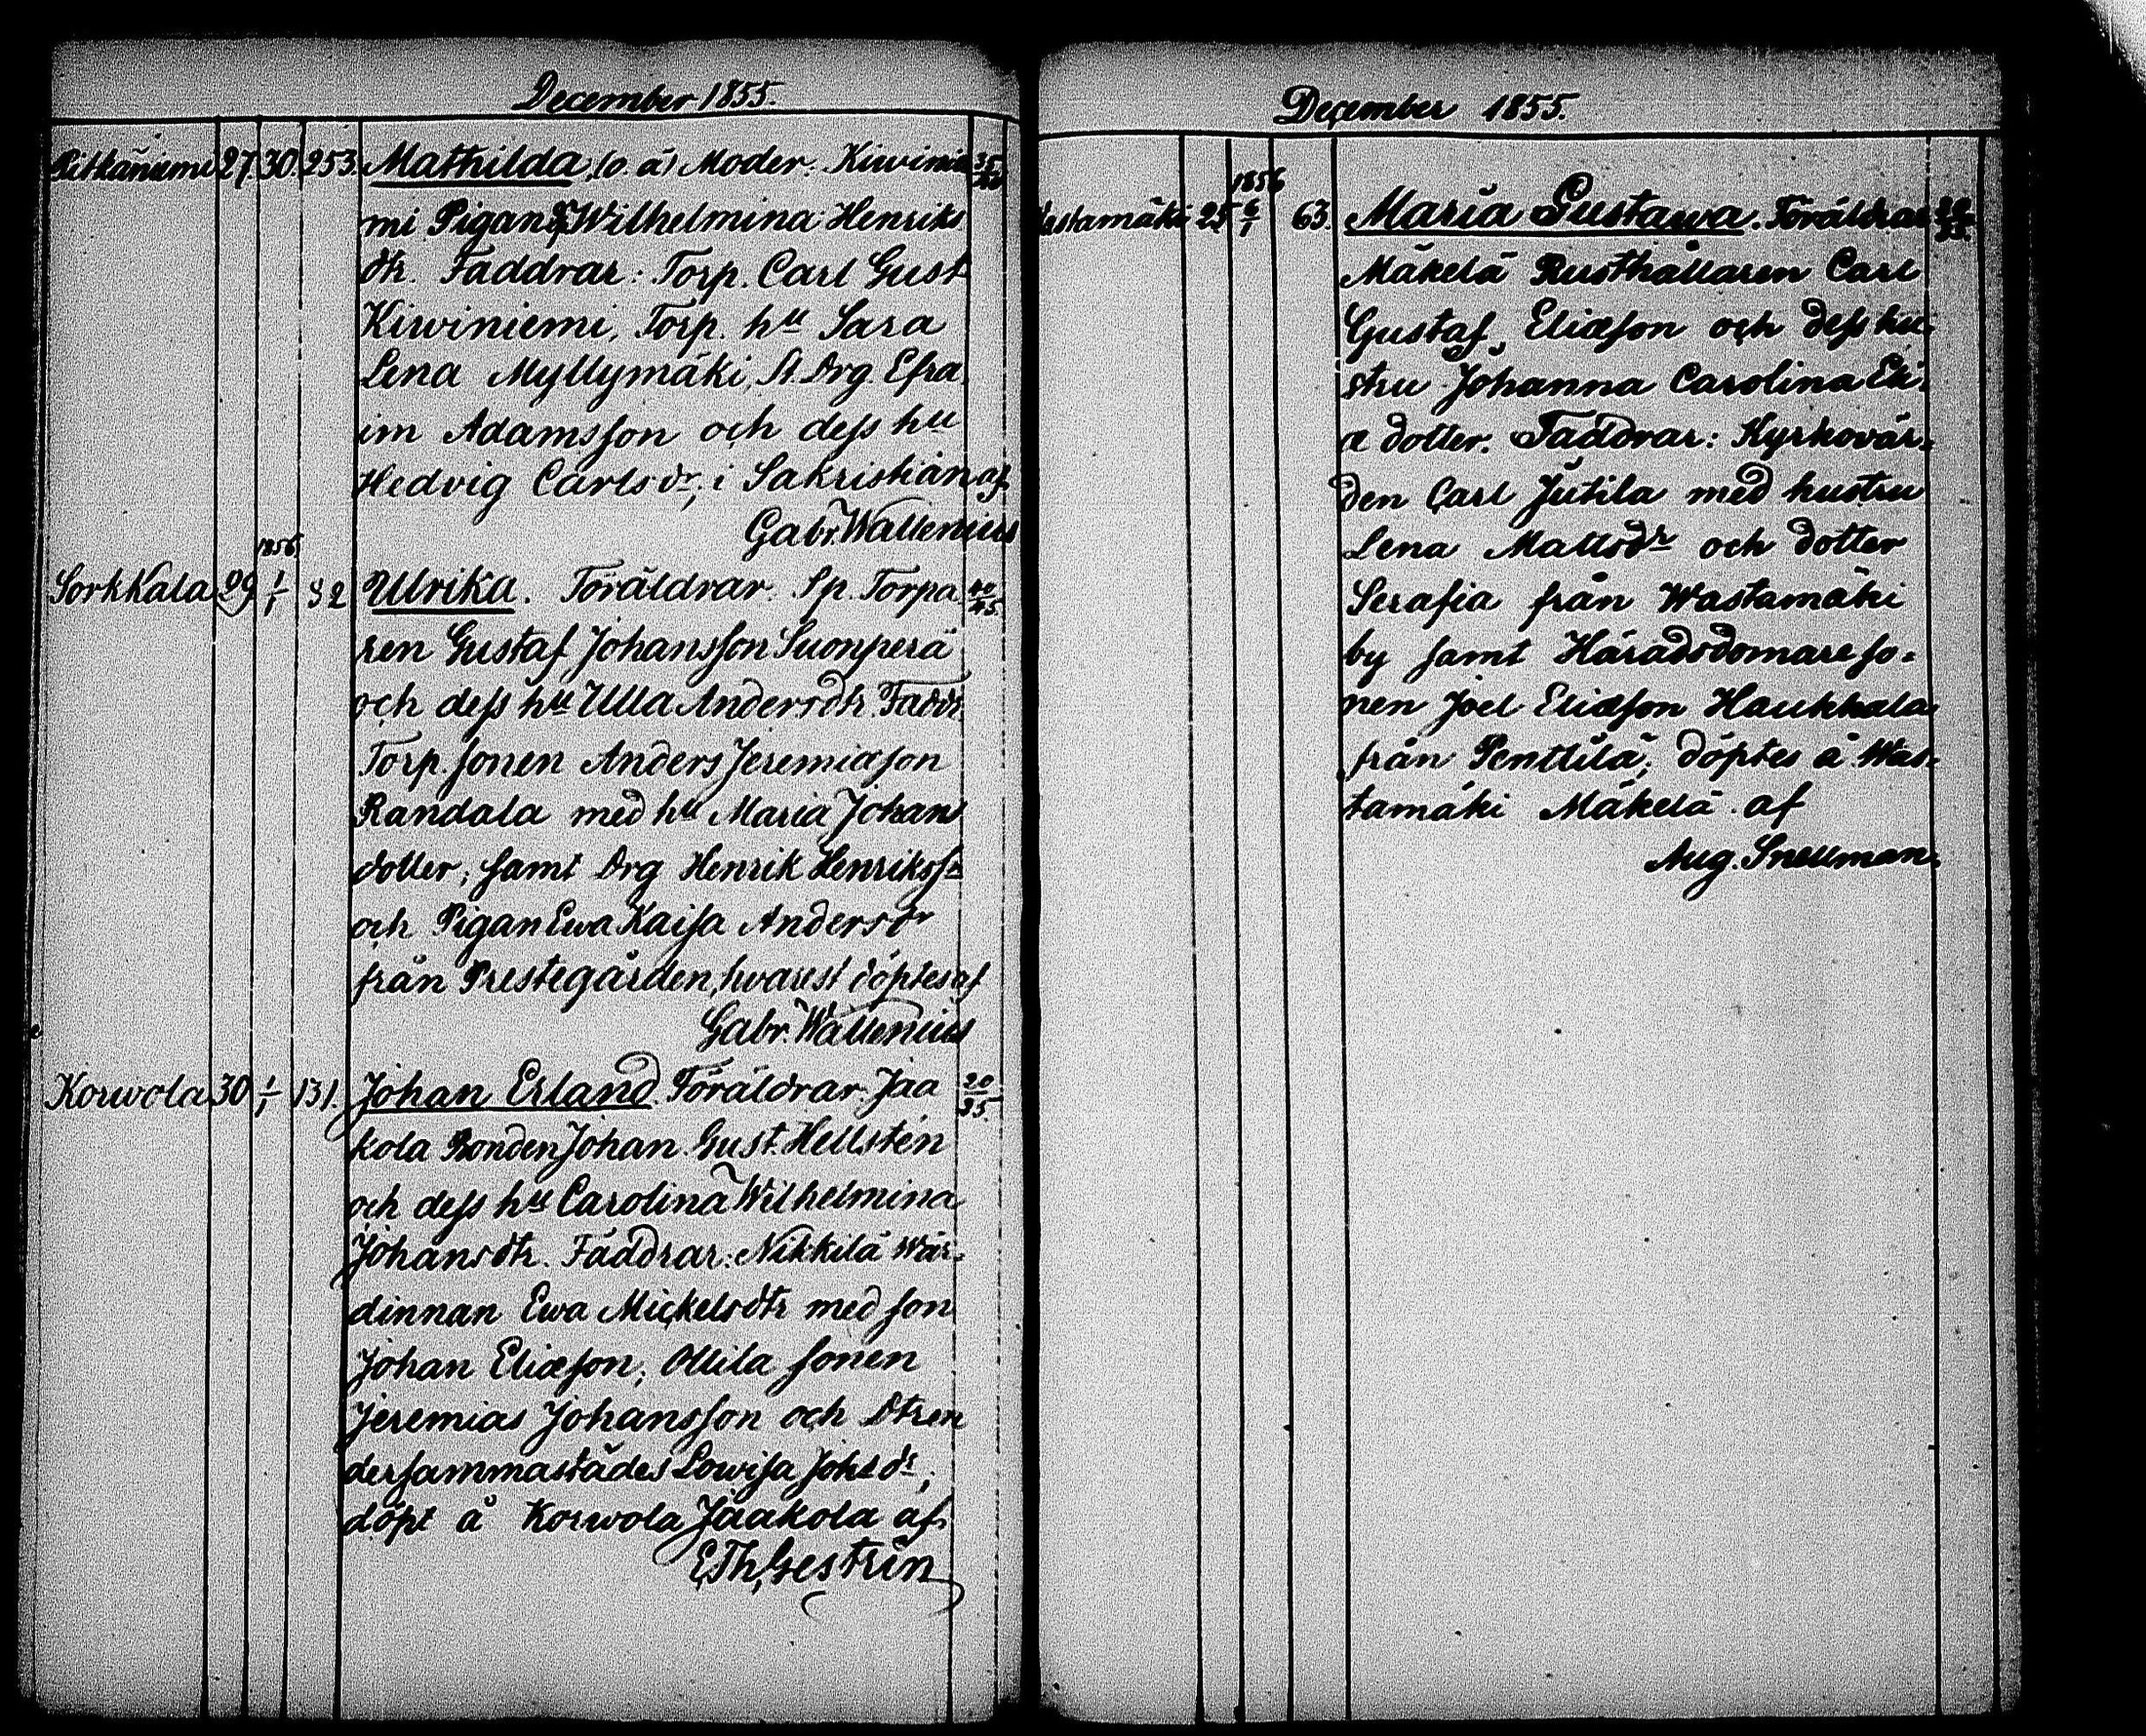 December 1855.
Pitkäniemi 27 30. 253. Mathilda, (o. ä) Moder: Kiwinie 35/40
mi Pigan Wilhelmina Henriks
dtr. Faddrar: Torp. Carl Gust
Kiwiniemi, Torp. hu Sara
Lena Myllymäki, St. Drg. Efra
im Adamsson och dess hu
Hedvig Carlsdr, i Sakristian af
Gabr. Wallenius
1856
Sorkkala 29 1/1 82 Ulrika. Föräldrar. Sp. Torpa 40/45
ren Gustaf Johansson Suonperä
och dess hu Ulla Andersdtr. Faddr
Torp. sonen Anders Jeremiæson
Randala med hu Maria Johans
dotter, samt Drg Henrik Henrikssn
och Pigan Ewa Kaisa Andersdr
från Prestegården, hvarest döptes af
Gabr. Wallenius
Korwola 30 1/1 131. Johan Erland. Föräldrar: Jaa 20/35.
kola Bonden Johan Gust. Hellstén
och dess hu Carolina Wilhelmina
Johansdtr. Faddrar: Nikkilä Wär-
dinnan Ewa Mickelsdtr med son
Johan Eliæson, Ollila sonen
Jeremias Johansson och Dtren
dersammastädes Lowisa Johsdr,
döpt å Korwola Jaakola af
E. Th. Gestrin
December 1855.
1856
astamäki 25 6/1 63. Maria Gustawa. Föräldrar
Mäkelä Rusthållaren Carl
Gustaf Eliæson och dess hu-
stru Johanna Carolina Eli-
æ dotter. Faddrar: Kyrkovär-
den Carl Jutila med hustru
Lena Mattsdr och dotter
Serafia från Wastamäki
by samt Häradsdomareso-
nen Joel Eliæson Haukkala
från Penttilä; döptes å Was-
tamäki Mäkelä af
Aug. Snellman.